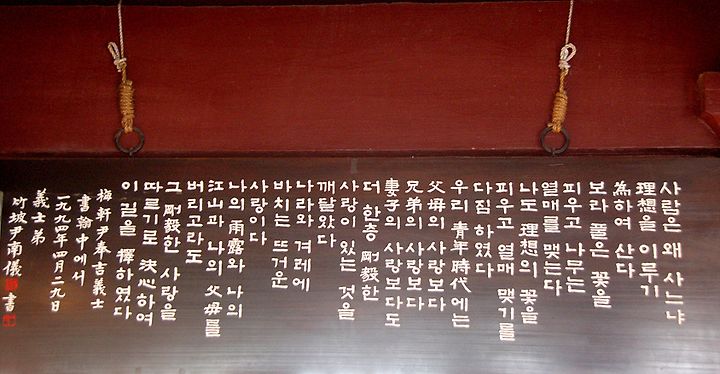 사람은 왜 사느냐
理想을 이루기
為하여 산다
보라 풀은 꽃을
피우고 나무는
열매를 맺는다
나도 理想의 꽃을
피우고 열매 맺기를
다짐 하였다
우리 青年時代에는
父母의 사랑보다
兄弟의 사랑보다
妻子의 사랑보다도
더 한층 剛毅한
사랑이 있는 것을
깨달았다
나라와 겨레에
바치는 뜨거운
사랑이다
나의 雨露와 나의
江山과 나의 父母를
버리고라도
그 剛毅한 사랑을
따르기로 決心하여
이 길을 擇하였다
梅軒尹奉吉義士
書翰中에서
一九九四年四月二九日
義士弟
竹坡尹南儀 書